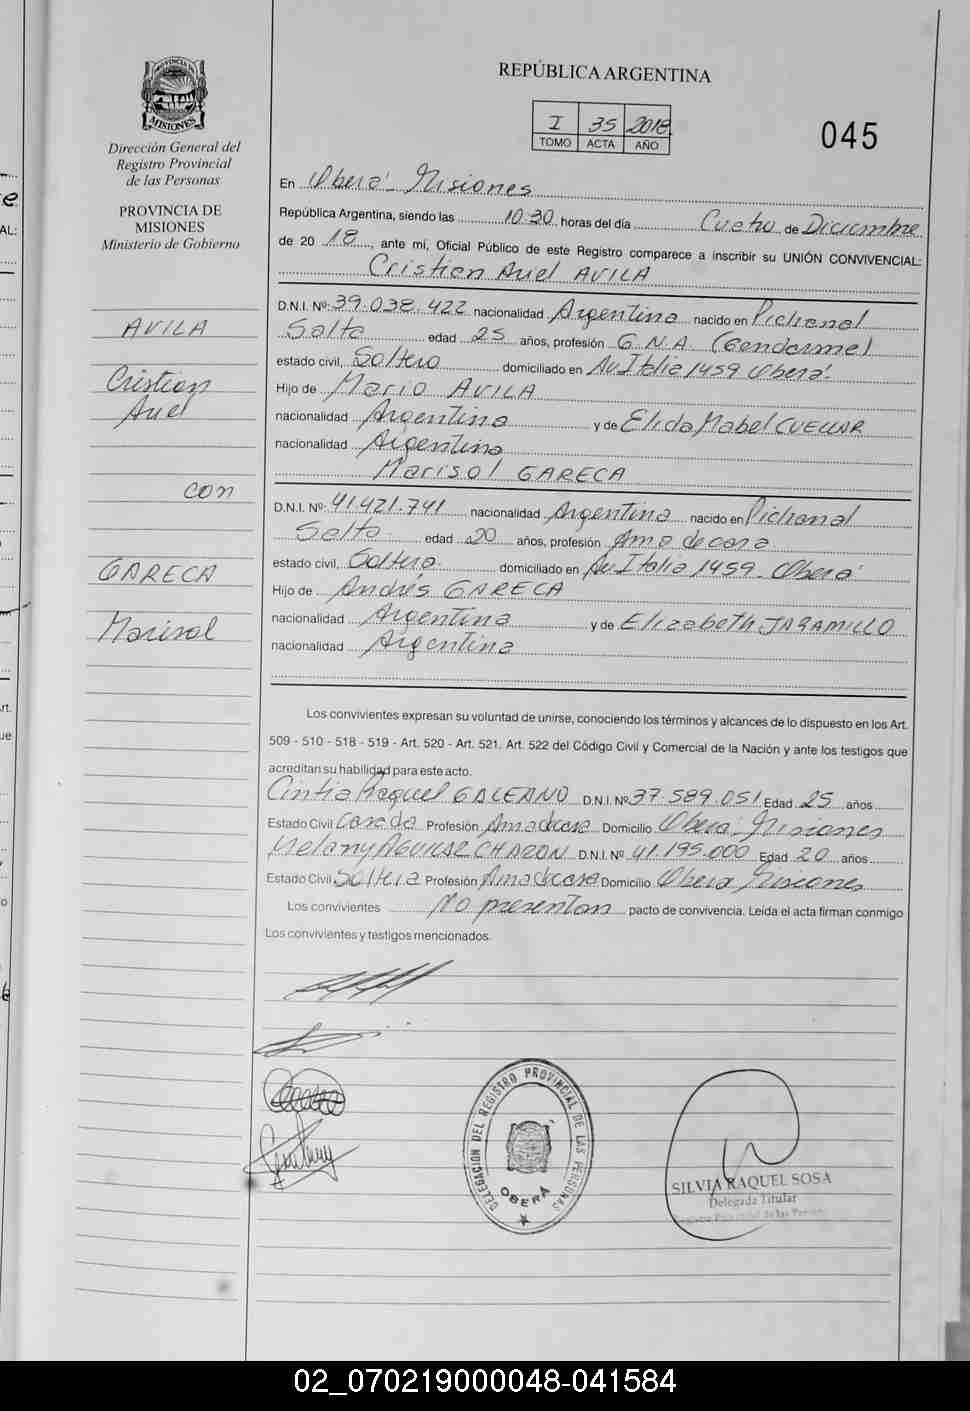 REPÚBLICA ARGENTINA
I 35 2018
TOMO ACTA AÑO
045
PROVINCIA DE
MISIONES
Dirección General del
Registro Provincial
de las Personas
PROVINCIA DE
MISIONES
Ministerio de Gobierno
AVILA
Cristian
Auel
con
GARECA
Marisol
En Oberá - Misiones
República Argentina, siendo las 10:30 horas del día Cuatro de Diciembre
de 20 18, ante mí, Oficial Público de este Registro comparece a inscribir su UNIÓN CONVIVENCIAL:
Cristian Auel AVILA
D.N.I. Nº 39.038.422 nacionalidad Argentina nacido en Pichanal
Salta edad 25 años, profesión G.N.A. (Gendarme)
estado civil, Soltero domiciliado en Av Italia 1459 Oberá-
Hijo de Mario AVILA
nacionalidad Argentina y de Elida Mabel CUELLAR
nacionalidad Argentina
Marisol GARECA
D.N.I. Nº 41.421.741 nacionalidad Argentina nacido en Pichanal
Salta edad 20 años, profesión Ama de casa
estado civil, Soltera domiciliado en Av Italia 1459 - Oberá
Hijo de Andrés GARECA
nacionalidad Argentina y de Elizabeth JARAMILLO
nacionalidad Argentina
Los convivientes expresan su voluntad de unirse, conociendo los términos y alcances de lo dispuesto en los Art.
509 - 510 - 518 - 519 - Art. 520 - Art. 521. Art. 522 del Código Civil y Comercial de la Nación y ante los testigos que
acreditan su habilidad para este acto.
Cintia Raquel GALEANO D.N.I. Nº 37.589.051 Edad 25 años
Estado Civil Casada Profesión Ama de casa Domicilio Oberá - Misiones
Melany Aguirre CHARON D.N.I. Nº 41.195.000 Edad 20 años
Estado Civil Soltera Profesión Ama de casa Domicilio Oberá Misiones
Los convivientes No presentan pacto de convivencia. Leída el acta firman conmigo
Los convivientes y testigos mencionados.
DELEGACION DEL REGISTRO PROVINCIAL DE LAS PERSONAS
OBERÁ
SILVIA RAQUEL SOSA
Delegada Titular
Registro Provincial de las Personas
02_070219000048-041584